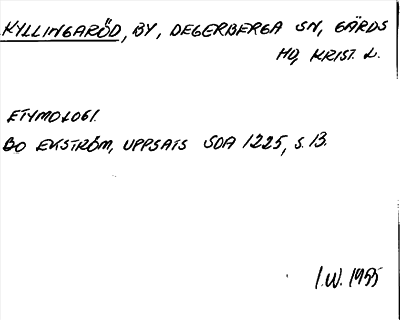 KYLLINGARÖD, BY, DEGERBERGA SN, GÄRDS
HD, KRIST. L.
ETYMOLOGI.
BO EKSTRÖM, UPPSATS SOA 1225, S. 13.
I.W. 1955